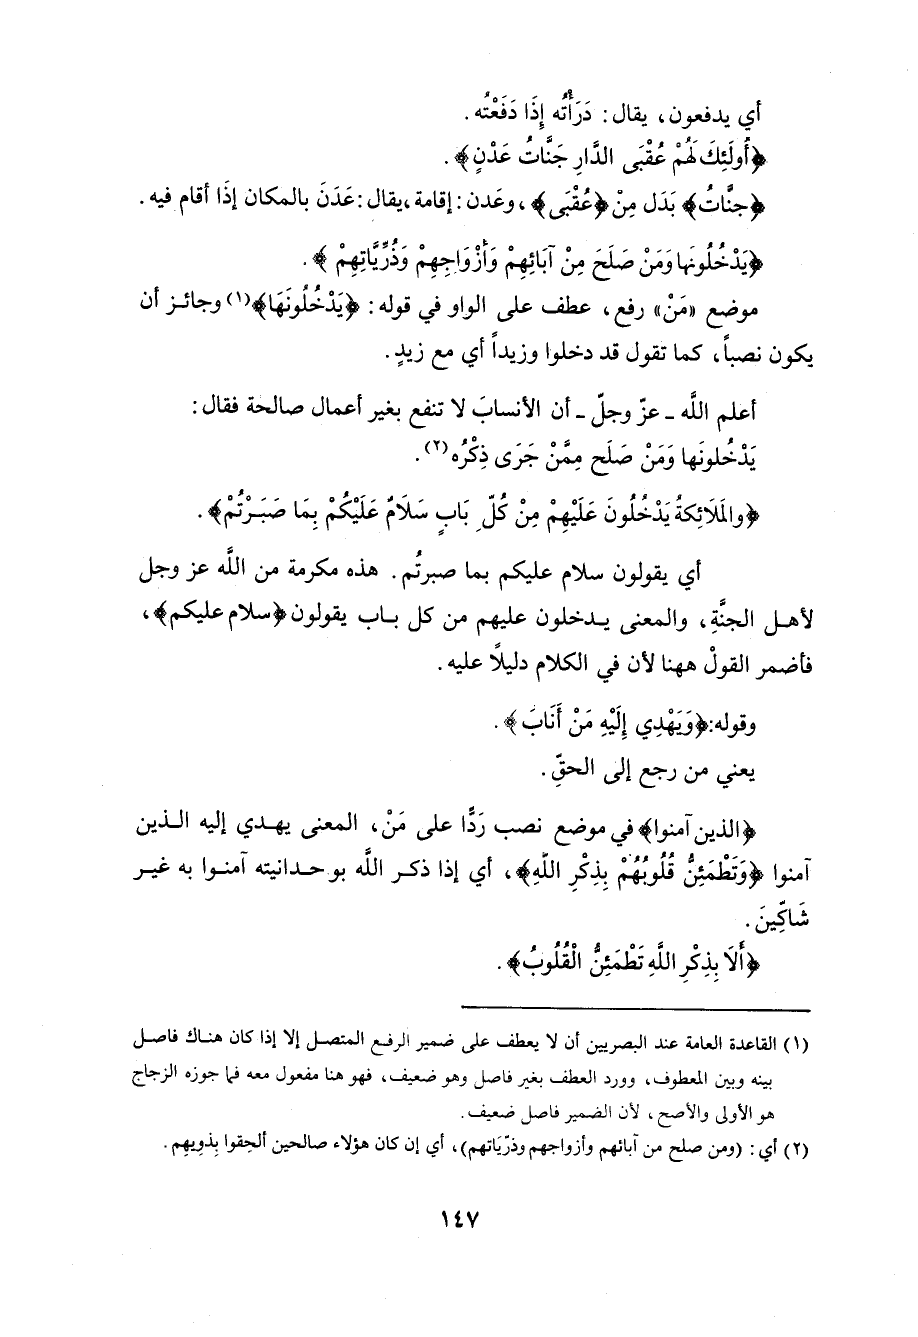 أي يدفعون، يقال: دَرَأتُه إِذَا دَفَعْتُه.
﴿أُولَئِكَ لَهُمْ عُقْبَى الدَّارِ جَنَّاتُ عَدْنٍ﴾.
﴿جنَّاتُ﴾ بَدَل مِنْ ﴿عُقْبَى﴾، وعَدن: إقامة، يقال: عَدَنَ بالمكان إِذَا أقام فيه.
﴿يَدْخُلُونَها وَمَنْ صَلَحَ مِنْ آبَائِهِمْ وَأَزْوَاجِهِمْ وَذُرِّيَّاتِهِمْ﴾.
موضع «مَنْ» رفع، عطف على الواو في قوله: ﴿يَدْخُلُونَهَا﴾(١) وجائز أن
يكون نصباً، كما تقول قد دخلوا وزيداً أي مع زيدٍ.
أعلم اللَّه ـ عزّ وجلّ ـ أن الأنسابَ لا تنفع بغير أعمال صالحة فقال:
يَدْخُلونَها وَمَنْ صَلَح مِمَّنْ جَرَى ذِكْرُه(٢).
﴿والمَلَائِكةُ يَدْخُلُونَ عَلَيْهِمْ مِنْ كُلِّ بَابٍ سَلَامٌ عَلَيْكُمْ بِمَا صَبَرْتُمْ﴾.
أي يقولون سلام عليكم بما صبرتُم. هذه مكرمة من اللَّه عز وجل
لأهل الجنَّةِ، والمعنى يدخلون عليهم من كل باب يقولون ﴿سلام عليكم﴾،
فأضمر القولْ ههنا لأن في الكلام دليلًا عليه.
وقوله: ﴿وَيَهْدِي إِلَيْهِ مَنْ أَنَابَ﴾.
يعني من رجع إلى الحقّ.
﴿الذين آمنوا﴾ في موضع نصب رَدًّا على مَنْ، المعنى يهدي إليه الذين
آمنوا ﴿وَتَطْمَئِنُّ قُلُوبُهُمْ بِذِكْرِ اللَّهِ﴾، أي إذا ذكر اللَّه بوحدانيته آمنوا به غير
شَاكِّينَ.
﴿أَلَا بِذِكْرِ اللَّهِ تَطْمَئِنُّ الْقُلُوبُ﴾.
(١) القاعدة العامة عند البصريين أن لا يعطف على ضمير الرفع المتصل إلا إذا كان هناك فاصل
بينه وبين المعطوف، وورد العطف بغير فاصل وهو ضعيف، فهو هنا مفعول معه فما جوزه الزجاج
هو الأولى والأصح، لأن الضمير فاصل ضعيف.
(٢) أي: (ومن صلح من آبائهم وأزواجهم وذرّيَاتهم)، أي إن كان هؤلاء صالحين ألحِقوا بِذوِيهِم.
١٤٧